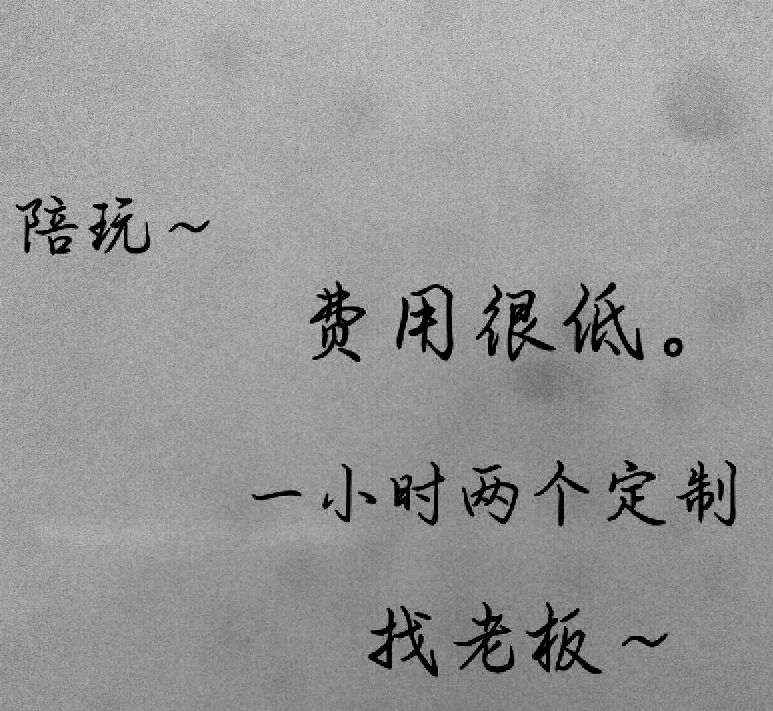 陪玩～
费用很低。
一小时两个定制
找老板～